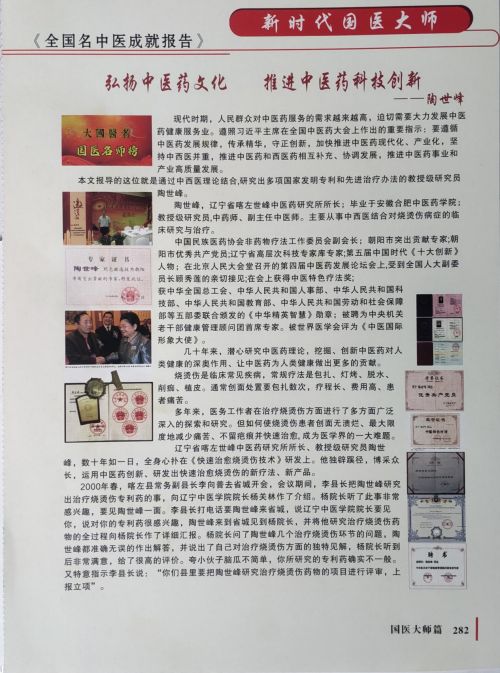 新时代国医大师
《全国名中医成就报告》
弘扬中医药文化 推进中医药科技创新
——陶世峰
大國醫者
国医名师榜
现代时期，人民群众对中医药服务的需求越来越高，迫切需要大力发展中医
药健康服务业。遵照习近平主席在全国中医药大会上作出的重要指示：要遵循
中医药发展规律，传承精华，守正创新，加快推进中医药现代化、产业化，坚
持中西医并重，推进中医药和西医药相互补充、协调发展，推进中医药事业和
产业高质量发展。
本文报导的这位就是通过中西医理论结合,研究出多项国家发明专利和先进治疗办法的教授级研究员
陶世峰。
陶世峰，辽宁省喀左世峰中医药研究所所长；毕业于安徽合肥中医药学院；
教授级研究员,中药师、副主任中医师。主要从事中西医结合对烧烫伤病症的临
床研究与治疗。
中国民族医药协会非药物疗法工作委员会副会长；朝阳市突出贡献专家;朝
阳市优秀共产党员;辽宁省高层次科技专家库专家;第五届中国时代《十大创新》
人物；在北京人民大会堂召开的第四届中医药发展论坛会上,受到全国人大副委
员长顾秀莲的亲切接见;在会上获得中医特色疗法奖;
获中华全国总工会、中华人民共和国人事部、中华人民共和国科
技部、中华人民共和国教育部、中华人民共和国劳动和社会保障
部等五部委联合颁发的《中华精英智慧》勋章；被聘为中央机关
老干部健康管理顾问团首席专家。被世界医学会评为《中医国际
形象大使》。
几十年来，潜心研究中医药理论，挖掘、创新中医药对人
类健康的深奥作用、让中医药为人类健康做出更多的贡献。
烧烫伤是临床常见疾病，常规疗法是包扎、灯烤、脱水、
削痂、植皮。通常创面处置要包扎数次，疗程长、费用高、患
者痛苦。
多年来，医务工作者在治疗烧烫伤方面进行了多方面广泛
深入的探索和研究。但如何使烧烫伤患者创面无溃烂、最大限
度地减少痛苦、不留疤痕并快速治愈,成为医学界的一大难题。
辽宁省喀左世峰中医药研究所所长、教授级研究员陶世
峰，数十年如一日，全身心扑在《快速治愈烧烫伤技术》研发上。他独辟蹊径，博采众
长，运用中医药创新、研发出快速治愈烧烫伤的新疗法、新产品。
2000年春，喀左县常务副县长李向普去省城开会，会议期间，李县长把陶世峰研究
出治疗烧烫伤专利药的事，向辽宁中医学院院长杨关林作了介绍。杨院长听了此事非常
感兴趣，要见陶世峰一面。李县长打电话要陶世峰来省城，说辽宁中医学院院长要见
你，说对你的专利药很感兴趣，陶世峰来到省城见到杨院长，并将他研究治疗烧烫伤药
物的全过程向杨院长作了详细汇报。杨院长问了陶世峰几个治疗烧烫伤环节的问题，陶
世峰都准确无误的作出解答，并说出了自己对治疗烧烫伤方面的独特见解，杨院长听到
后非常满意，给了很高的评价。夸小伙子脑瓜不简单，你所研究的专利药确实不一般。
又特意指示李县长说：“你们县里要把陶世峰研究治疗烧烫伤药物的项目进行评审，上
报立项”。
专家证书
陶世峰
聘书
国医大师篇 282